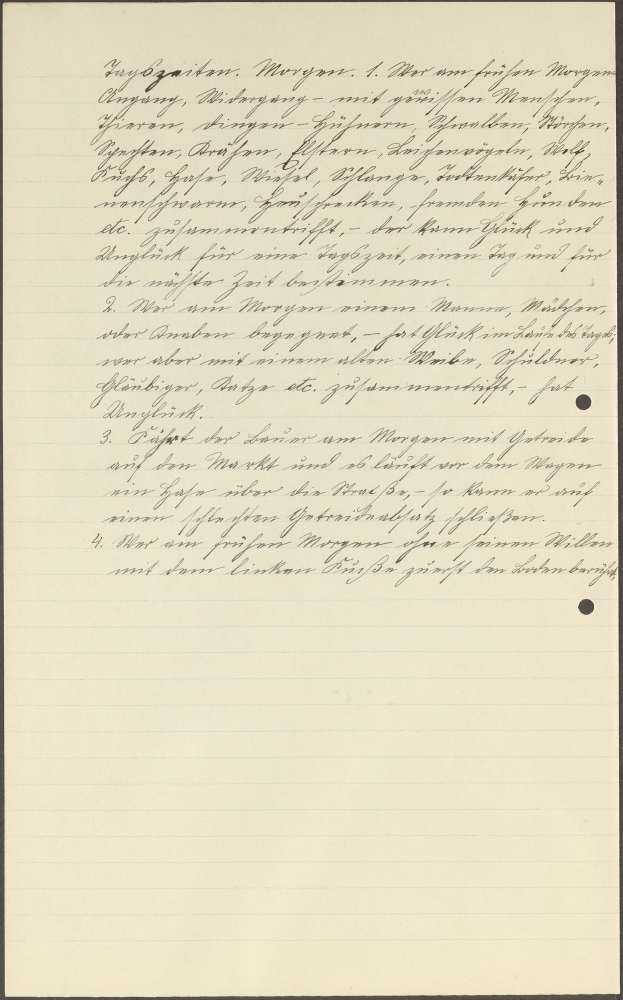 Tagszeiten. Morgen. 1. Wer am frühen Morgen
Angang, Widergang - mit gewissen Menschen,
Thieren, Dingen - Hühnern, Schwalben, Störchen,
Spechten, Krähen, Elstern, Leichenvögeln, Wolf,
Fuchs, Hase, Wiesel, Schlange, Todtenkäfer, Bie-
nenschwarm, Heuschrecken, fremden Hunden
etc. zusammentrifft, - der kann Glück und
Unglück für eine Tagszeit, einen Tag und für
die nächste Zeit bestimmen.
2. Wer am Morgen einem Manne, Mädchen,
oder Knaben begegnet, - hat Glück im Laufe des Tages,
wer aber mit einem alten Weibe, Schuldner,
Gläubiger, Katze etc. zusammentrifft, - hat
Unglück.
3. Fährt der Bauer am Morgen mit Getreide
auf den Markt und es läuft vor dem Wagen
ein Hase über die Straße, - so kann er auf
einen schlechten Getreideabsatz schließen.
4. Wer am frühen Morgen ohne seinen Willen
mit dem linken Fuße zuerst den Boden berührt,